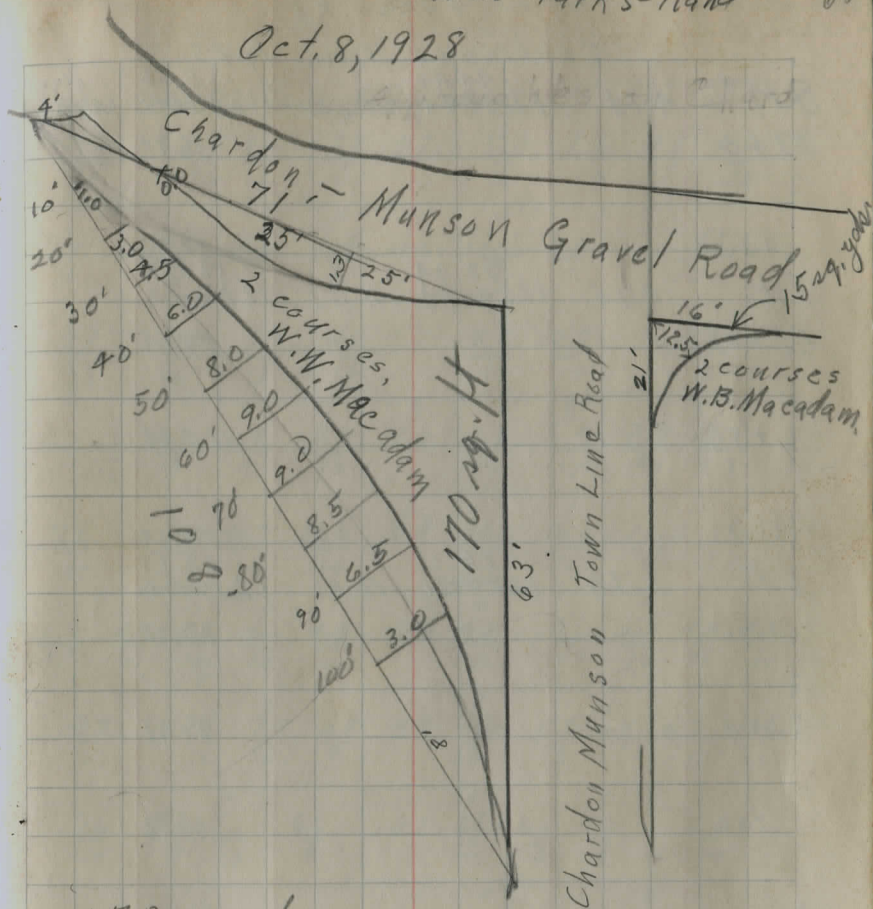 Oct. 8, 1928
4'
Chardon - Munson Gravel Road
71'
25'
25'
10'
20'
30'
40'
50'
60'
70'
80'
90'
100'
3.0
4.5
6.0
8.0
9.0
9.0
8.5
6.5
3.0
18'
2 courses,
W.W. Macadam
170 sq. ft
63'
Chardon Munson Town Line Road
21'
16'
15 sq. yds.
12.5
2 courses
W.B. Macadam.